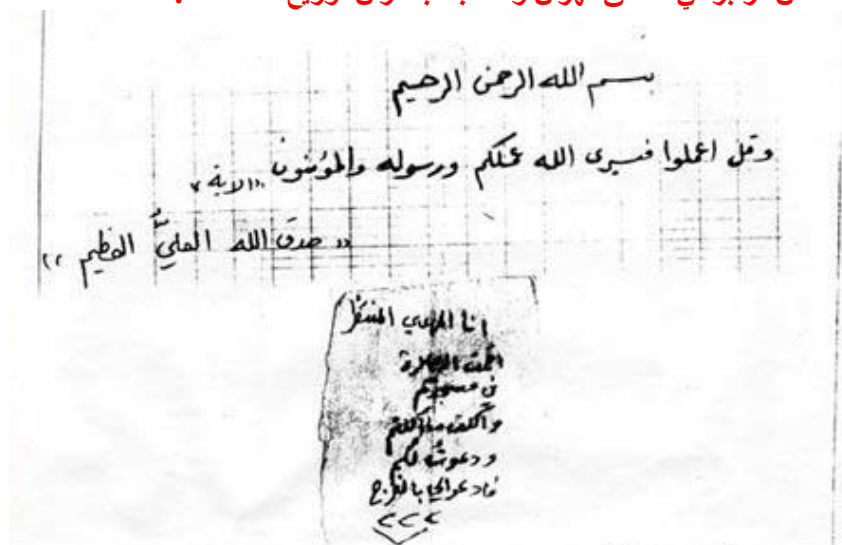 بسم الله الرحمن الرحيم
وقل اعملوا فسيرى الله عملكم ورسوله والمؤمنون "الاية"
"صدق الله العليُّ العظيم"
انا المهدي المنتظر
في مسجدكم
وأكلت مما أكلتم
ودعوتُ لكم
فادعوا لي بالفرج